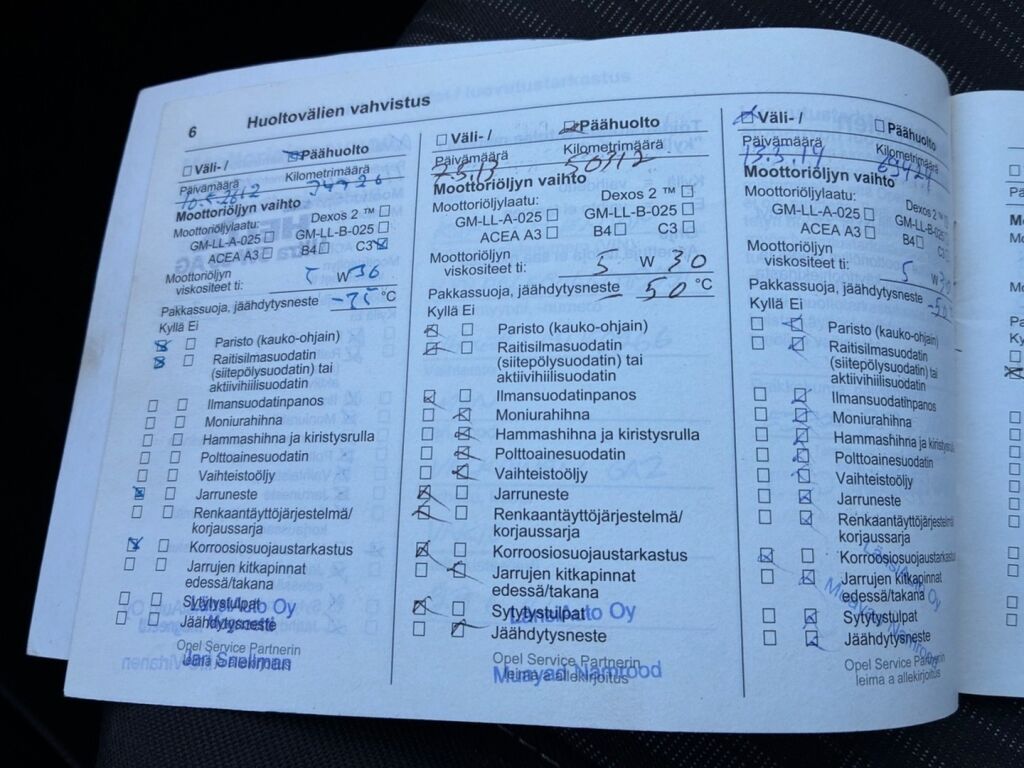 6 Huoltovälien vahvistus
Väli- / Päähuolto
Päivämäärä Kilometrimäärä
Moottoriöljyn vaihto
Moottoriöljylaatu: Dexos 2 ™
GM-LL-A-025 GM-LL-B-025
ACEA A3 B4 C3
Moottoriöljyn
viskositeet ti: W 30
Pakkassuoja, jäähdytysneste °C
Kyllä Ei
Paristo (kauko-ohjain)
Raitisilmasuodatin
(siitepölysuodatin) tai
aktiivihiilisuodatin
Ilmansuodatinpanos
Moniurahihna
Hammashihna ja kiristysrulla
Polttoainesuodatin
Vaihteistoöljy
Jarruneste
Renkaantäyttöjärjestelmä/
korjaussarja
Korroosiosuojaustarkastus
Jarrujen kitkapinnat
edessä/takana
Sytytystulpat
LänsiAuto Oy
Jäähdytysneste
Opel Service Partnerin
leima a allekirjoitus
Jari Snellman
Väli- / Päähuolto
Päivämäärä Kilometrimäärä
50312
Moottoriöljyn vaihto
Moottoriöljylaatu: Dexos 2 ™
GM-LL-A-025 GM-LL-B-025
ACEA A3 B4 C3
Moottoriöljyn
viskositeet ti: 5 W 30
Pakkassuoja, jäähdytysneste - 50 °C
Kyllä Ei
Paristo (kauko-ohjain)
Raitisilmasuodatin
(siitepölysuodatin) tai
aktiivihiilisuodatin
Ilmansuodatinpanos
Moniurahihna
Hammashihna ja kiristysrulla
Polttoainesuodatin
Vaihteistoöljy
Jarruneste
Renkaantäyttöjärjestelmä/
korjaussarja
Korroosiosuojaustarkastus
Jarrujen kitkapinnat
edessä/takana
Sytytystulpat
LänsiAuto Oy
Jäähdytysneste
Opel Service Partnerin
leima a allekirjoitus
Muayad Namrood
Väli- / Päähuolto
Päivämäärä Kilometrimäärä
13.3.14
Moottoriöljyn vaihto
Moottoriöljylaatu: Dexos 2 ™
GM-LL-A-025 GM-LL-B-025
ACEA A3 B4 C3
Moottoriöljyn
viskositeet ti: 5 W 30
Pakkassuoja, jäähdytysneste
Kyllä Ei
Paristo (kauko-ohjain)
Raitisilmasuodatin
(siitepölysuodatin) tai
aktiivihiilisuodatin
Ilmansuodatinpanos
Moniurahihna
Hammashihna ja kiristysrulla
Polttoainesuodatin
Vaihteistoöljy
Jarruneste
Renkaantäyttöjärjestelmä/
korjaussarja
Korroosiosuojaustarkastus
Jarrujen kitkapinnat
edessä/takana
LänsiAuto Oy
Muayad Namrood
Sytytystulpat
Jäähdytysneste
Opel Service Partnerin
leima a allekirjoitus